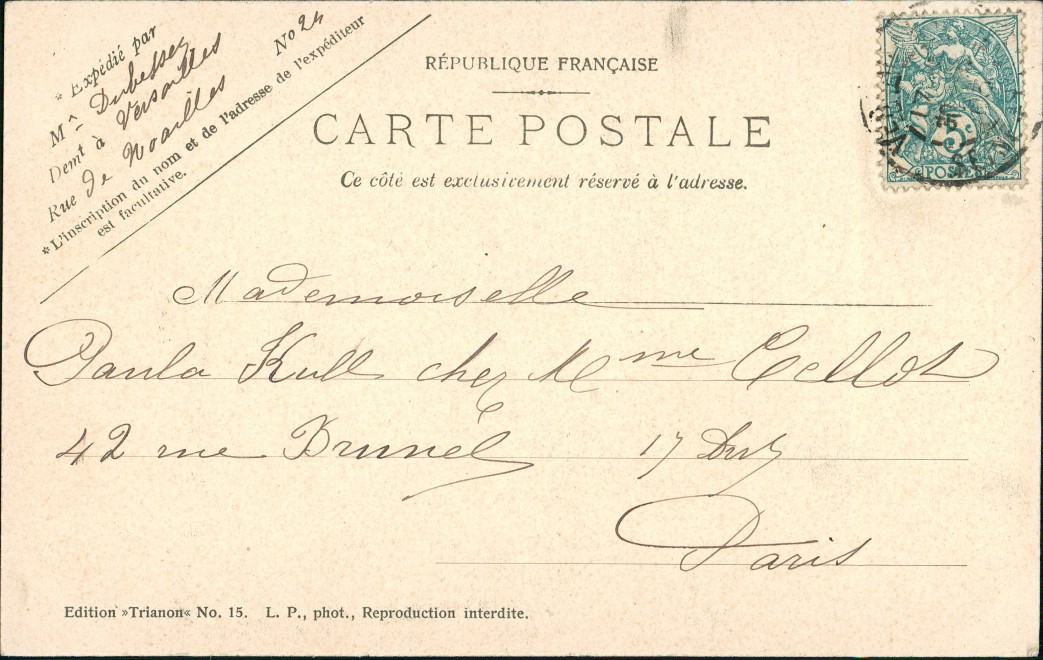 * Expédié par
Dubessey No 24
Demt à Versailles
Rue de Noailles
* L'inscription du nom et de l'adresse de l'expéditeur
est facultative.
RÉPUBLIQUE FRANÇAISE
CARTE POSTALE
Ce côté est exclusivement réservé à l'adresse.
5c
POSTES
Mademoiselle
Paula Kull chez Mme Cellot
42 rue Brunel 17
Paris
Edition »Trianon« No. 15. L. P., phot., Reproduction interdite.